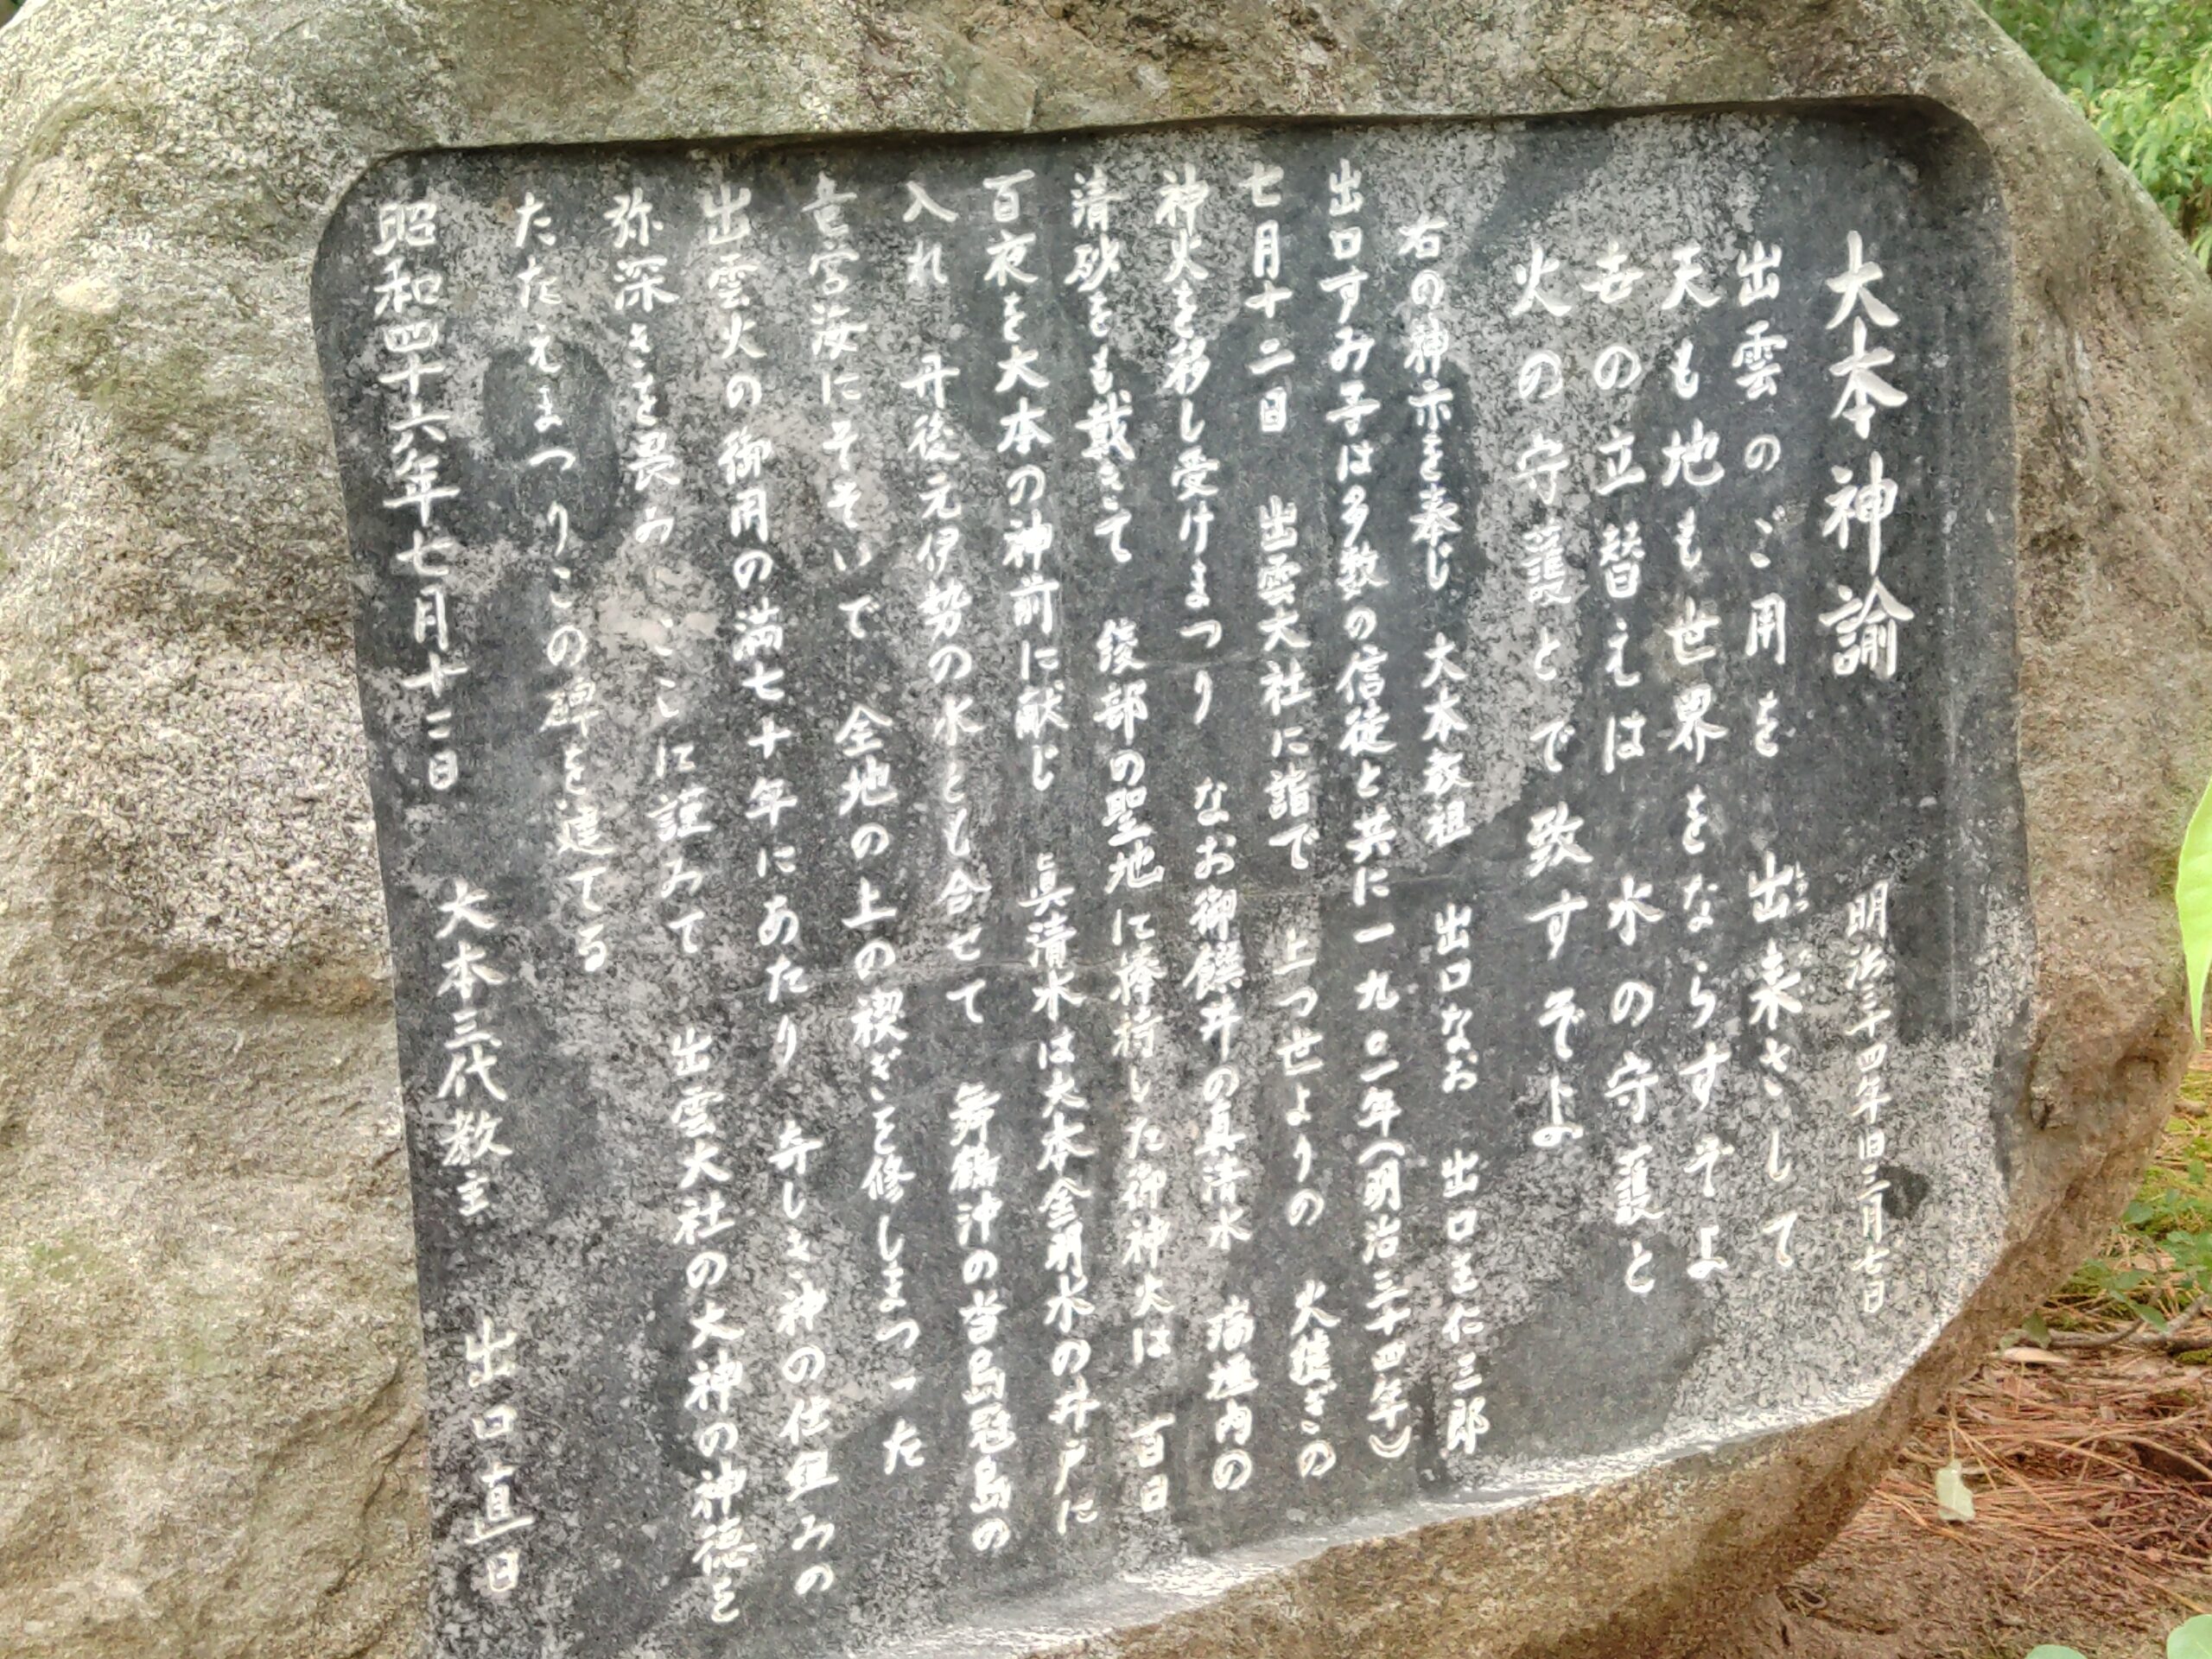 大本神諭　明治三十四年旧三月七日
出雲のご用を　出来さして
天も地も世界をならすぞよ
世の立替えは　水の守護と
火の守護とで致すぞよ
右の神示を奉じ　大本教祖　出口なお　出口王仁三郎
出口すみ子は多数の信徒と共に一九〇一年（明治三十四年）
七月十二日　出雲大社に詣で　上つ世よりの　火継ぎの
神火を移し受けまつり　なお御饌井の真清水　瑞垣内の
清砂をも戴きて　綾部の聖地に捧持した御神火は　百日
百夜を大本の神前に献じ　真清水は大本金明水の井戸に
入れ　丹後元伊勢の水とも合せて　舞鶴沖の沓島冠島の
竜宮海にそそいで　全地の上の禊ぎを修しまつった
出雲火の御用の満七十年にあたり　奇しき神の仕組みの
弥深きを畏み　ここに謹みて　出雲大社の大神の神徳を
たたえまつりこの碑を建てる
昭和四十六年七月十二日　大本三代教主　出口直日